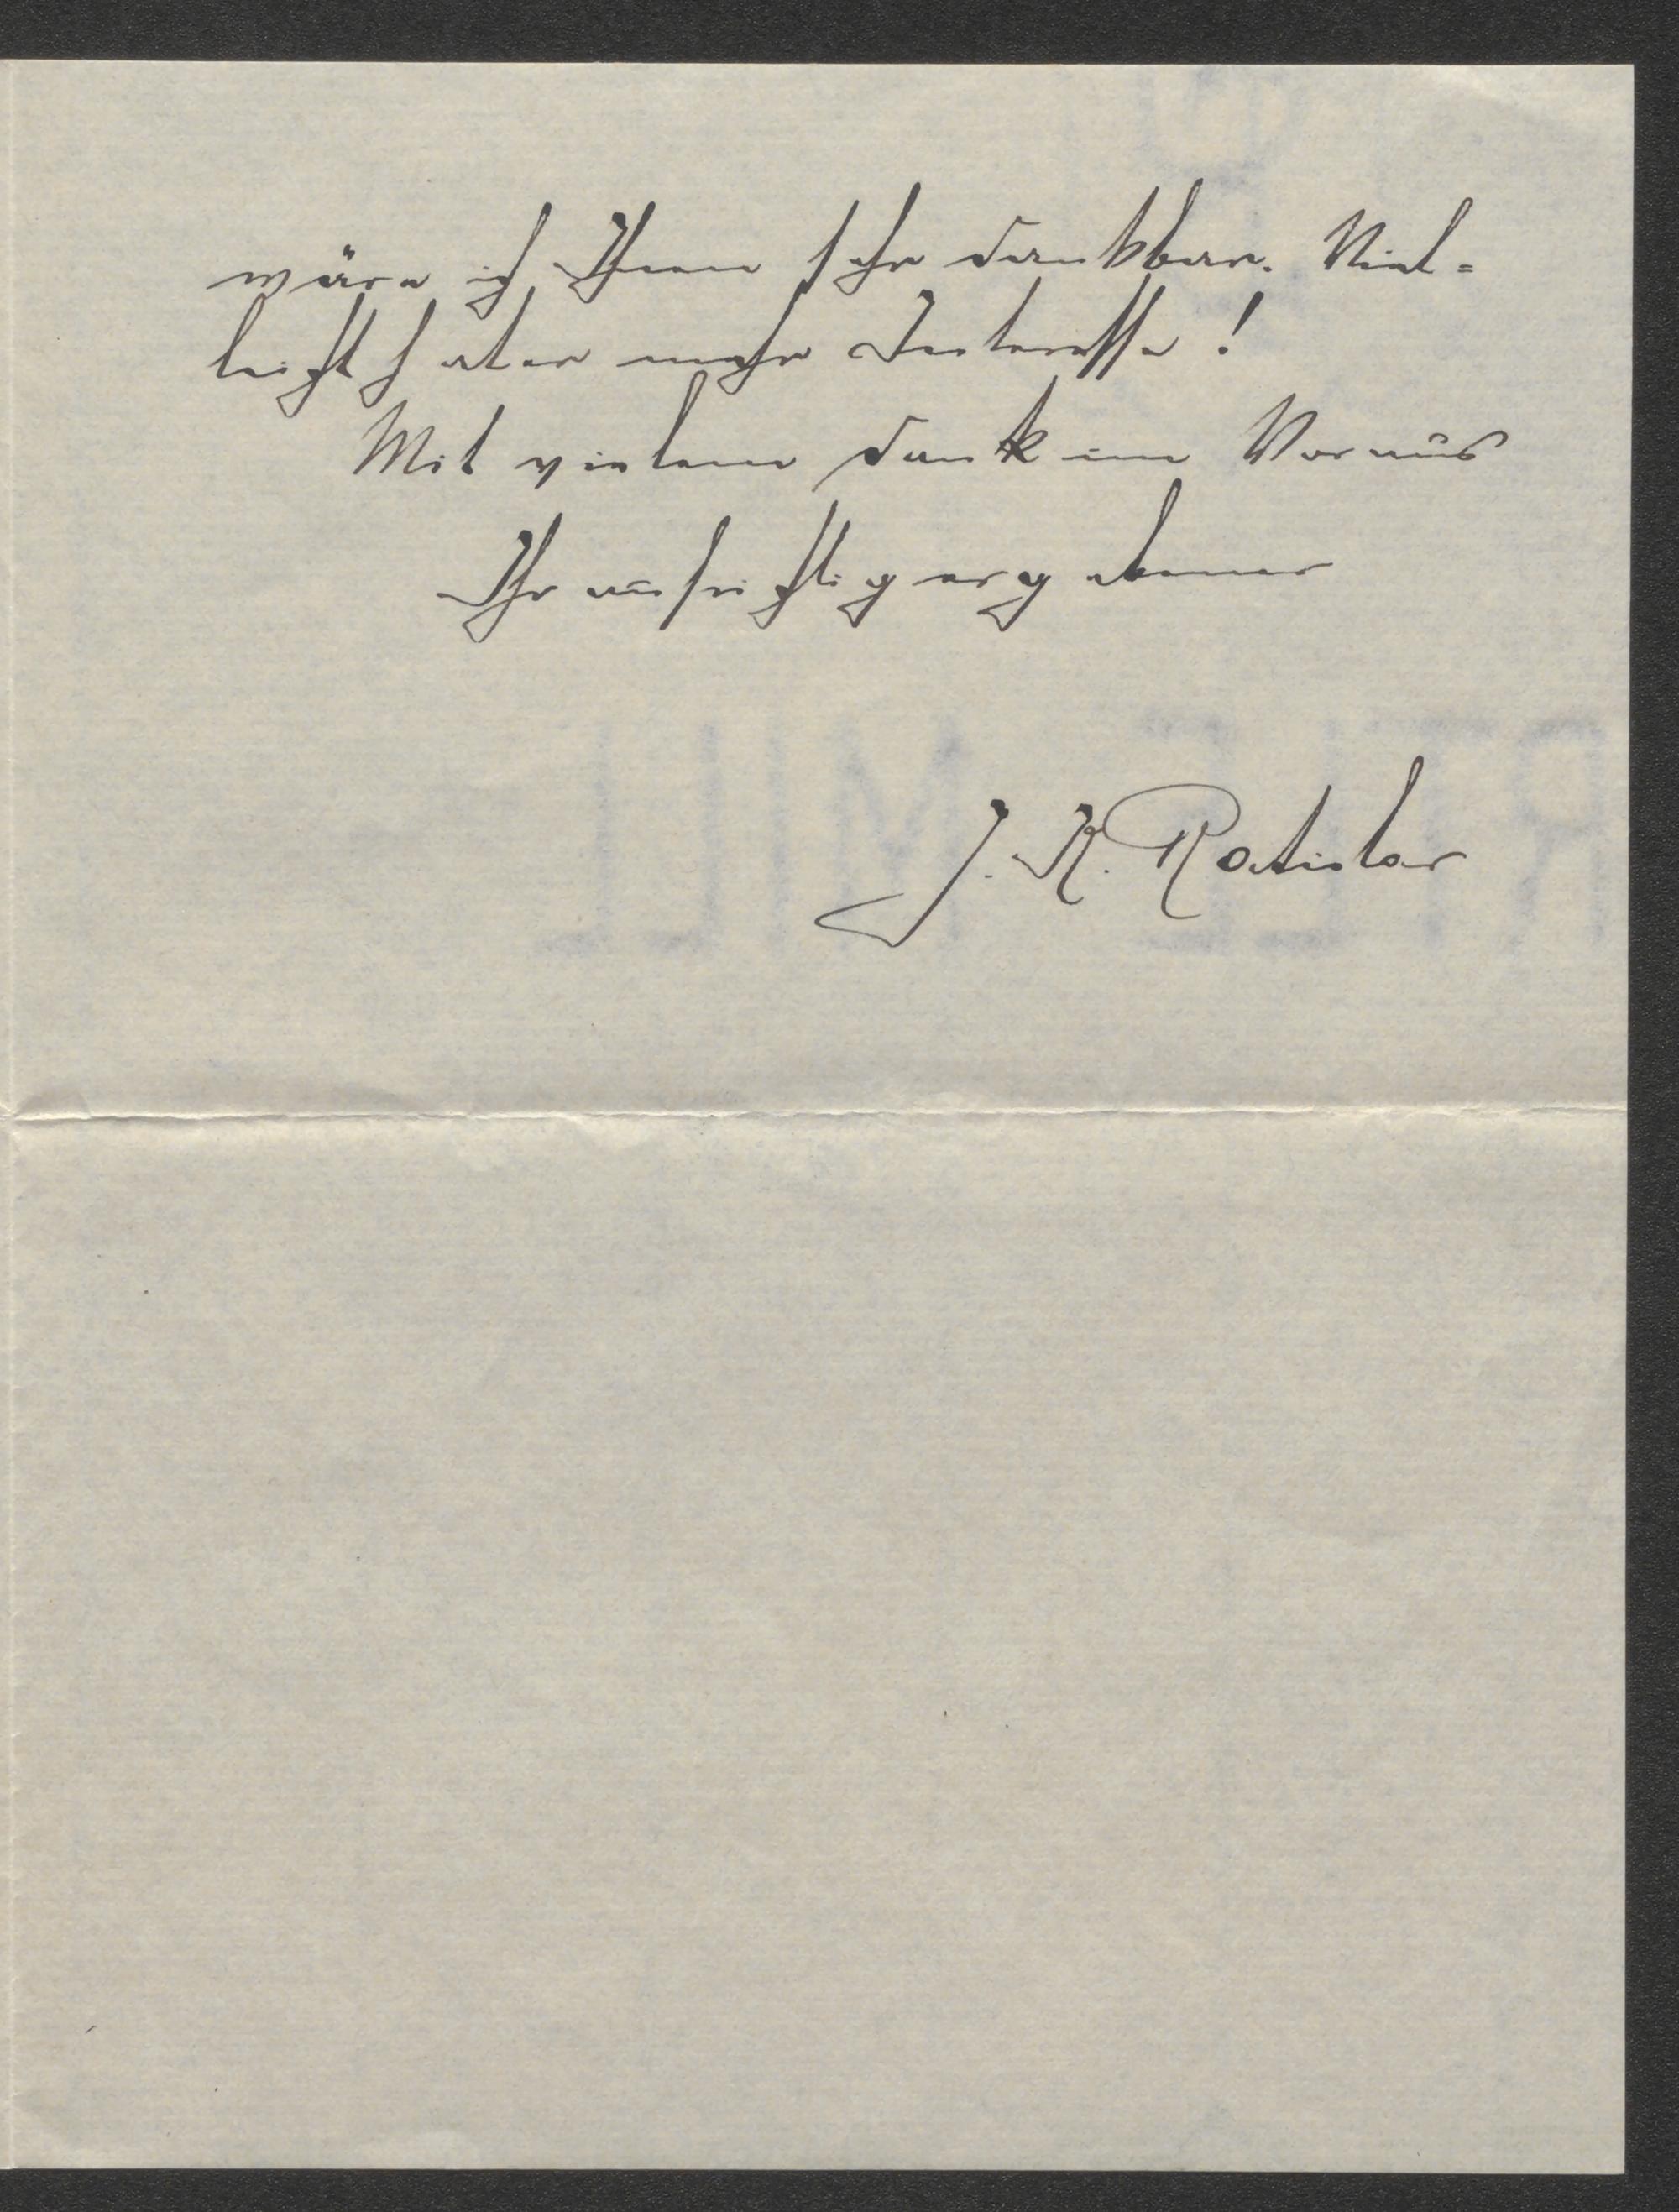 wäre ich Ihnen sehr dankbar. Viel=
leicht hat er mehr Interesse!
Mit vielem Dank im Voraus
Ihr aufrichtig ergebener
J. K. Ratislav